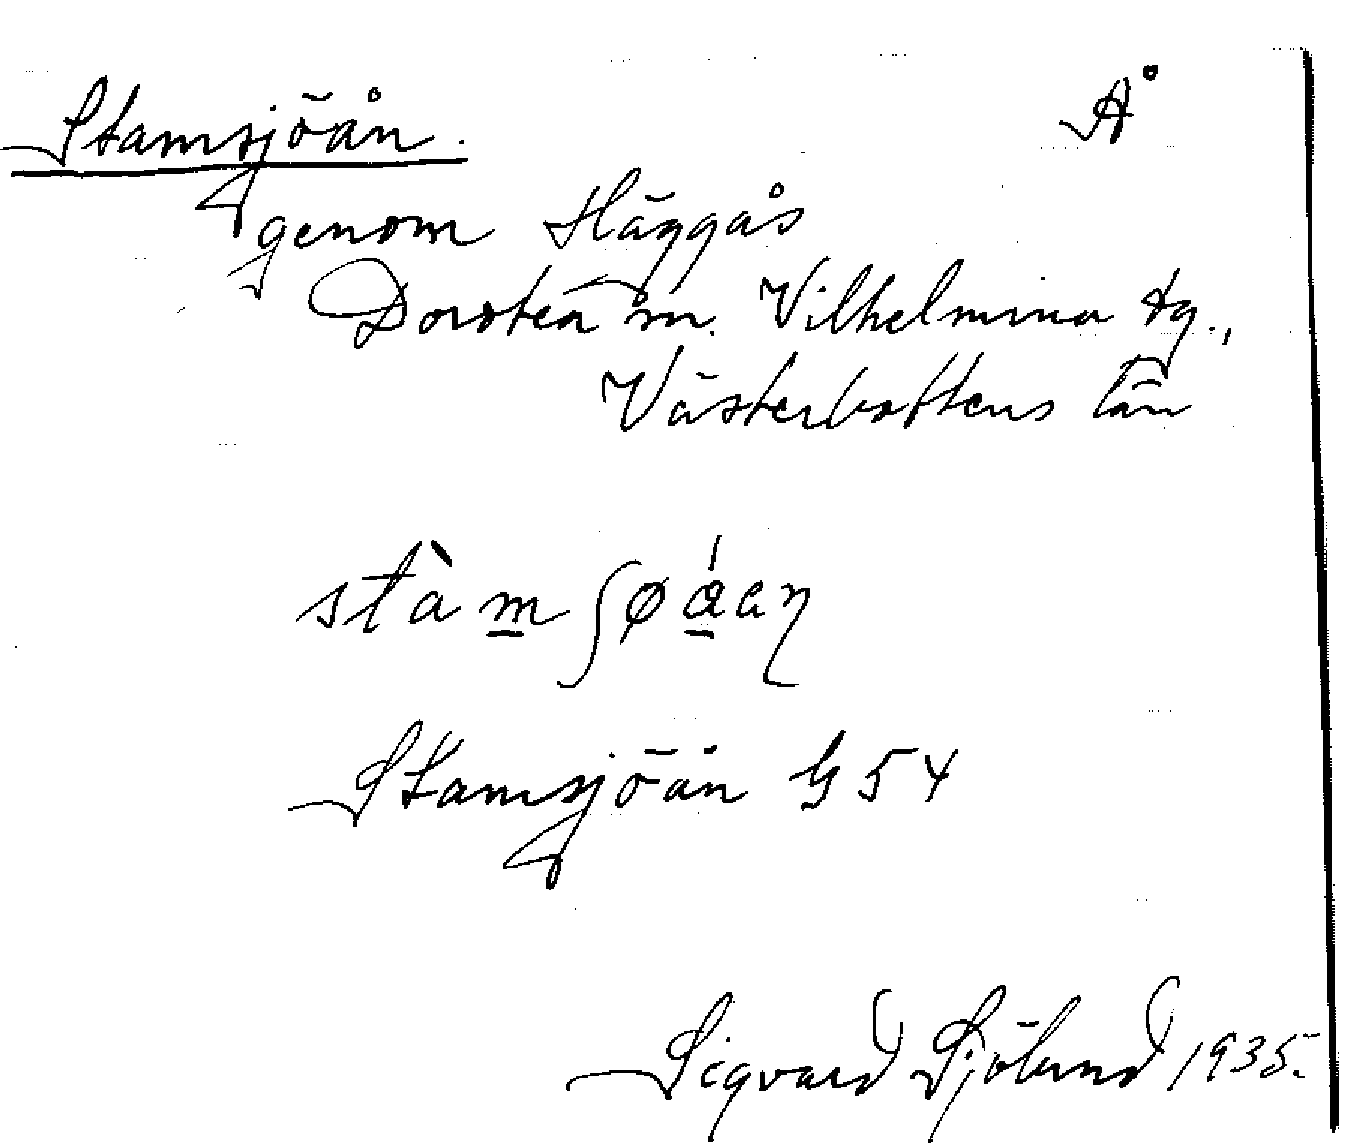 Stamsjöån. Å
genom Häggås
Dorotea sn. Vilhelmina tg.,
Västerbottens län
stàm̲ʃøá̲an
Stamsjöån G 54
Sigvard Sjölund 1935.